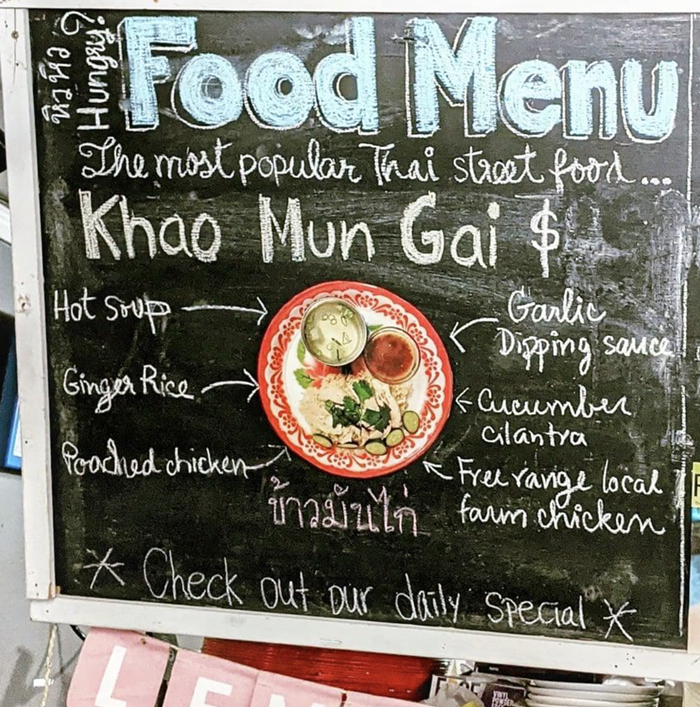 หิวหิว ?
Hungry?
Food Menu
The most popular Thai street food...
Khao Mun Gai $
Hot Soup
Ginger Rice
Poached chicken
Garlic
Dipping sauce
Cucumber
cilantra
Free range local
farm chicken
ข้าวมันไก่
* Check out our daily special *
LEM